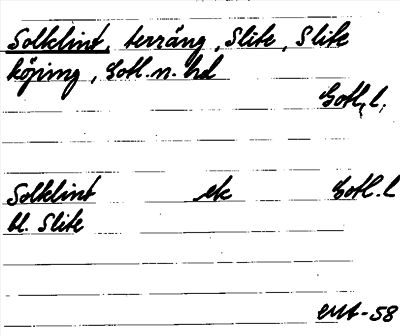 Solklint, terräng, Slite, Slite
köping, Gotl. n. hd
Gotl. l.
Solklint ek Gotl. l
bl. Slite
EUA-58